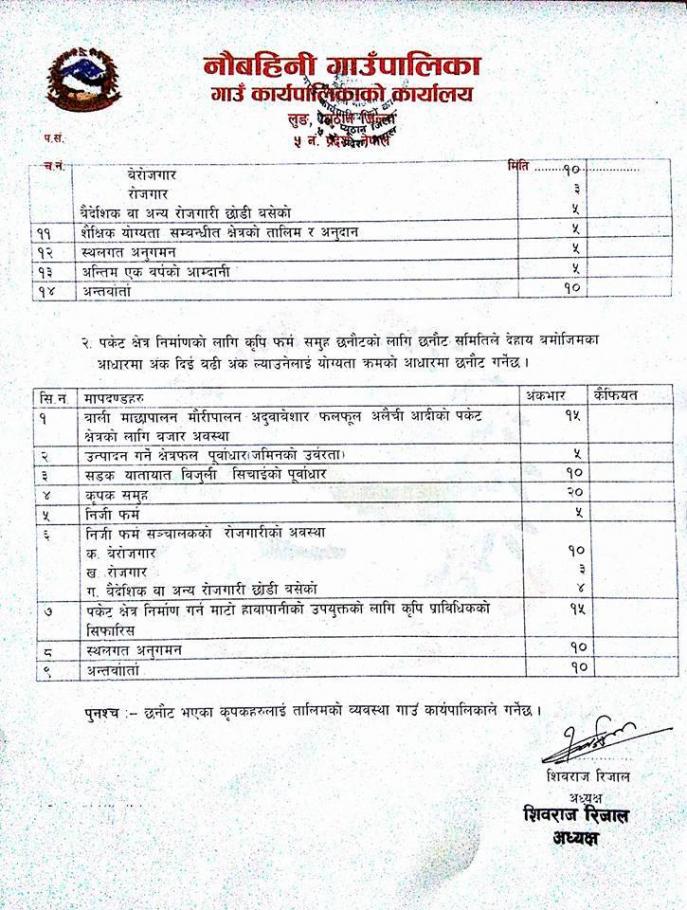 नौबहिनी गाउँपालिका
गाउँ कार्यपालिकाको कार्यालय
लुङ, प्यूठान जिल्ला
५ नं. प्रदेश, नेपाल
प.सं.
च.नं.
मिति ....................
बेरोजगार १०
रोजगार ३
बैदेशिक वा अन्य रोजगारी छोडी बसेको ५
११ शैक्षिक योग्यता सम्बन्धीत क्षेत्रको तालिम र अनुदान ५
१२ स्थलगत अनुगमन ५
१३ अन्तिम एक वर्षको आम्दानी ५
१४ अन्तर्वार्ता १०
२. पकेट क्षेत्र निर्माणको लागि कृषि फर्म समुह छनौटको लागि छनौट समितिले देहाय बमोजिमका
आधारमा अंक दिई बढी अंक ल्याउनेलाई योग्यता क्रमको आधारमा छनौट गर्नेछ ।
सि.न मापदण्डहरु अंकभार कैफियत
१ बाली माछापालन मौरीपालन अदुवाबेशार फलफूल अलैची आदीको पकेट १५
क्षेत्रको लागि बजार अवस्था
२ उत्पादन गर्ने क्षेत्रफल पूर्वाधार(जमिनको उर्वरता) ५
३ सडक यातायात विजुली सिचाईको पूर्वाधार १०
४ कृषक समुह २०
५ निजी फर्म ५
६ निजी फर्म सञ्चालकको रोजगारीको अवस्था
क. बेरोजगार १०
ख. रोजगार ३
ग. बैदेशिक वा अन्य रोजगारी छोडी बसेको ४
७ पकेट क्षेत्र निर्माण गर्न माटो हावापानीको उपयुक्तको लागि कृषि प्राविधिकको १५
सिफारिस
८ स्थलगत अनुगमन १०
९ अन्तर्वार्ता १०
पुनश्च :– छनौट भएका कृषकहरुलाई तालिमको व्यवस्था गाउँ कार्यपालिकाले गर्नेछ ।
शिवराज रिजाल
अध्यक्ष
शिवराज रिजाल
अध्यक्ष